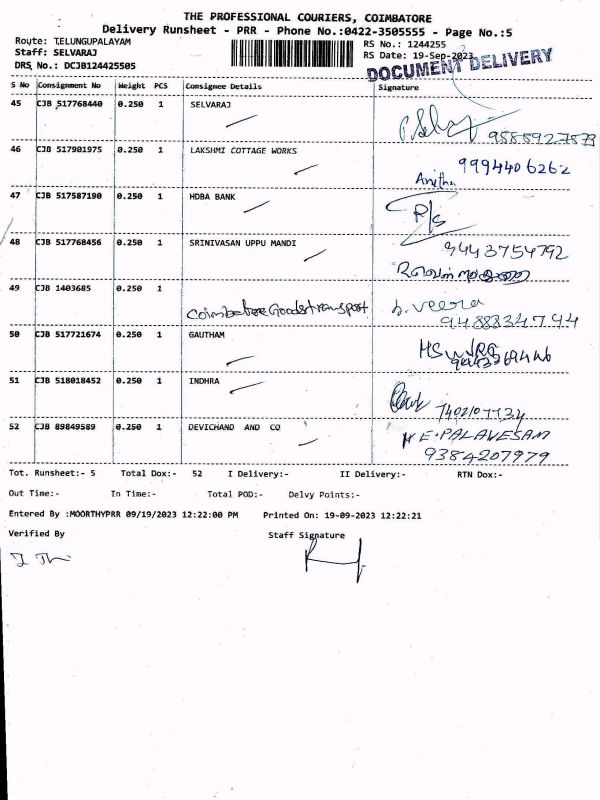 THE PROFESSIONAL COURIERS, COIMBATORE
Delivery Runsheet - PRR - Phone No.:0422-3505555 - Page No.:5
Route: TELUNGUPALAYAM
RS No.: 1244255
Staff: SELVARAJ
RS Date: 19-Sep-2023
DRS No.: DCJB124425505
DOCUMENT DELIVERY
S No Consignment No Weight PCS Consignee Details Signature
45 CJB 517768440 0.250 1 SELVARAJ
46 CJB 517901975 0.250 1 LAKSHMI COTTAGE WORKS
9994406262
Anitha
47 CJB 517587190 0.250 1 HDBA BANK
48 CJB 517768456 0.250 1 SRINIVASAN UPPU MANDI
9443754792
49 CJB 1403685 0.250 1
Coimbatore Goods transport
50 CJB 517721674 0.250 1 GAUTHAM
51 CJB 518018452 0.250 1 INDHRA
52 CJB 89849589 0.250 1 DEVICHAND AND CO
E. PALAVESAM
9384207979
Tot. Runsheet:- 5 Total Dox:- 52 I Delivery:- II Delivery:- RTN Dox:-
Out Time:- In Time:- Total POD:- Delvy Points:-
Entered By :MOORTHYPRR 09/19/2023 12:22:00 PM Printed On: 19-09-2023 12:22:21
Verified By Staff Signature